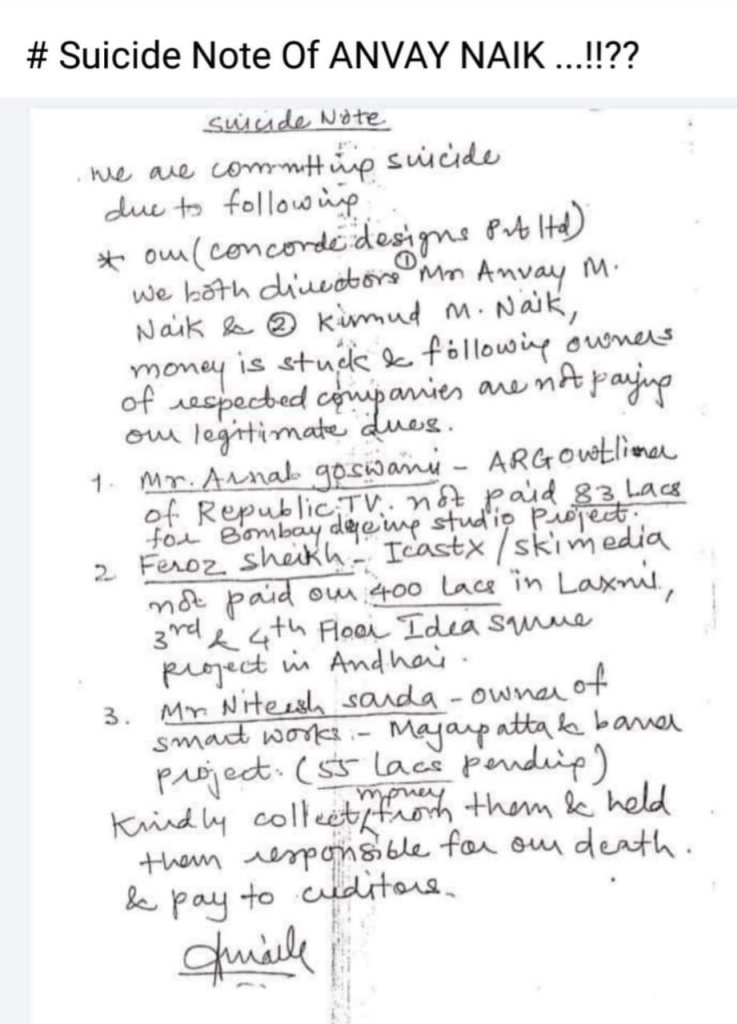 # Suicide Note Of ANVAY NAIK ...!!??
suicide Note
. we are committing suicide
due to following
* our (concorde designs Pvt ltd)
we both directors ① Mr Anvay M.
Naik & ② Kumud M. Naik,
money is stuck & following owners
of respected companies are not paying
our legitimate dues.
1. Mr. Arnab goswami - ARG Outlier
of Republic TV. not paid 83 Lacs
for Bombay studio Project.
2 Feroz sheikh - Icastx / skimedia
not paid our 400 lacs in Laxmi,
3rd & 4th Floor Idea square
project in Andheri.
3. Mr Niteesh sarda - owner of
smart works :- Magarpatta & baner
project. (55 lacs pending)
money
Kindly collect from them & held
them responsible for our death.
& pay to creditors.